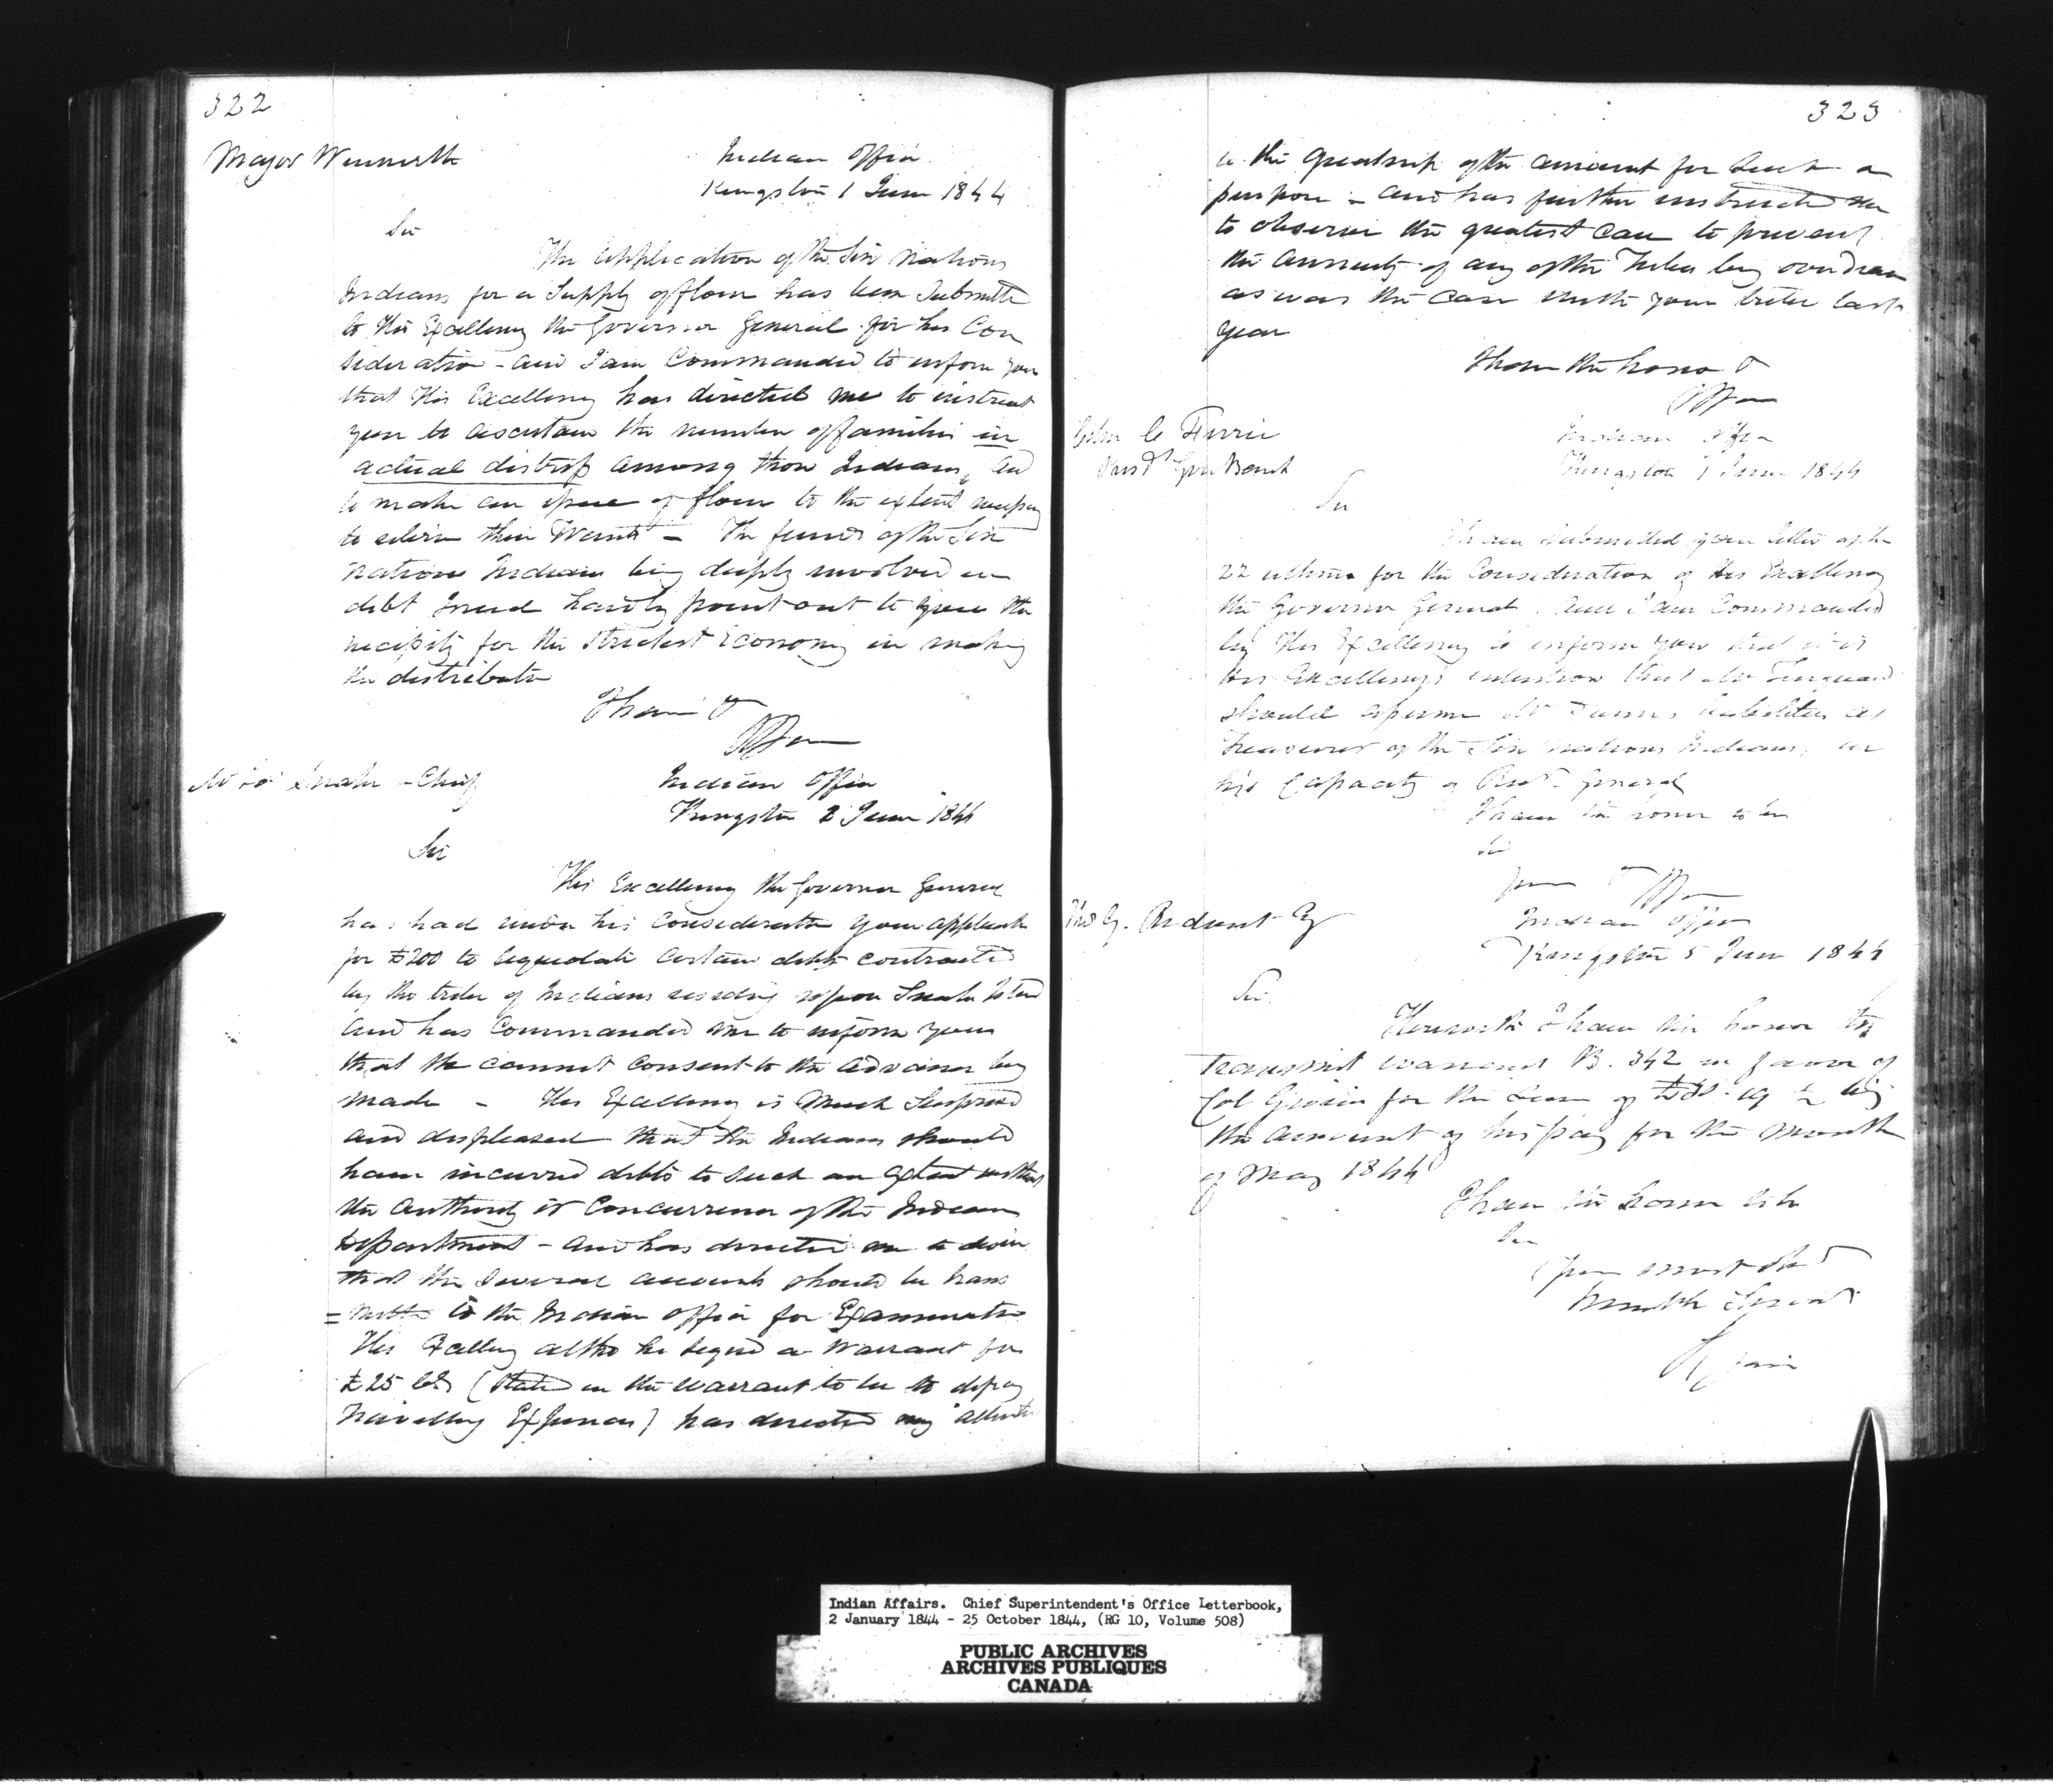 322
Major Winniett
Indian Office
Kingston 1 June 1844
Sir
The application of the Six Nations
Indians for a Supply of flour has been Submitted
to His Excellency the Governor General for his Con
sideration - and I am Commanded to inform you
that His Excellency has directed me to instruct
you to ascertain the number of families in
actual distress among those Indians, and
to make an issue of flour to the extent necessary
to relieve their Wants - The funds of the Six
Nations Indians being deeply involved in
debt I need hardly point out to you the
necessity for the strictest Economy in making
the distribution
I have &
Snake - Chief
Indian Office
Kingston 2 June 1844
Sir
His Excellency the Governor General
has had under his Consideration your application
for £200 to liquidate certain debts contracted
by the tribe of Indians residing upon Snake Island
and has Commanded me to inform you
that He cannot Consent to the advance being
made - His Excellency is Much Surprised
and displeased that the Indians should
have incurred debts to such an extent without
the authority or Concurrence of the Indian
Department - and has directed me to desire
that the several accounts should be trans
= mitted to the Indian Office for Examination
His Excellency altho he signed a Warrant for
£25 (stated in the warrant to be to defray
travelling Expences) has directed my attention
323
to the greatness of the amount for such a
purpose - and has further instructed me
to observe the greatest care to prevent
the annuity of any of the Tribes being overdrawn
as was the case with your tribe last
year
I have the honor &
John C Ferrie
Presdt Gore Bank
Indian Office
Kingston 1 June 1844
Sir
I have Submitted your letter of the
22 ultimo for the Consideration of His Excellency
the Governor General. and I am Commanded
by His Excellency to inform you that it is
His Excellency's intention that Mr Turquand
should assume Mr Dunn's liabilities as
Treasurer of the Six Nations Indians, in
his Capacity of Recr General
I have the honor to be
Sir
your
Indian Office
Kingston 5 June 1844
Sir
Herewith I have the honor to
transmit warrant B. 342 in favor of
Col for the Sum of being
the amount of his pay for the month
of May 1844
I have the honor to be
Sir
your most Obt
humble Servant
Indian Affairs. Chief Superintendent's Office Letterbook,
2 January 1844 - 25 October 1844, (RG 10, Volume 508)
PUBLIC ARCHIVES
ARCHIVES PUBLIQUES
CANADA